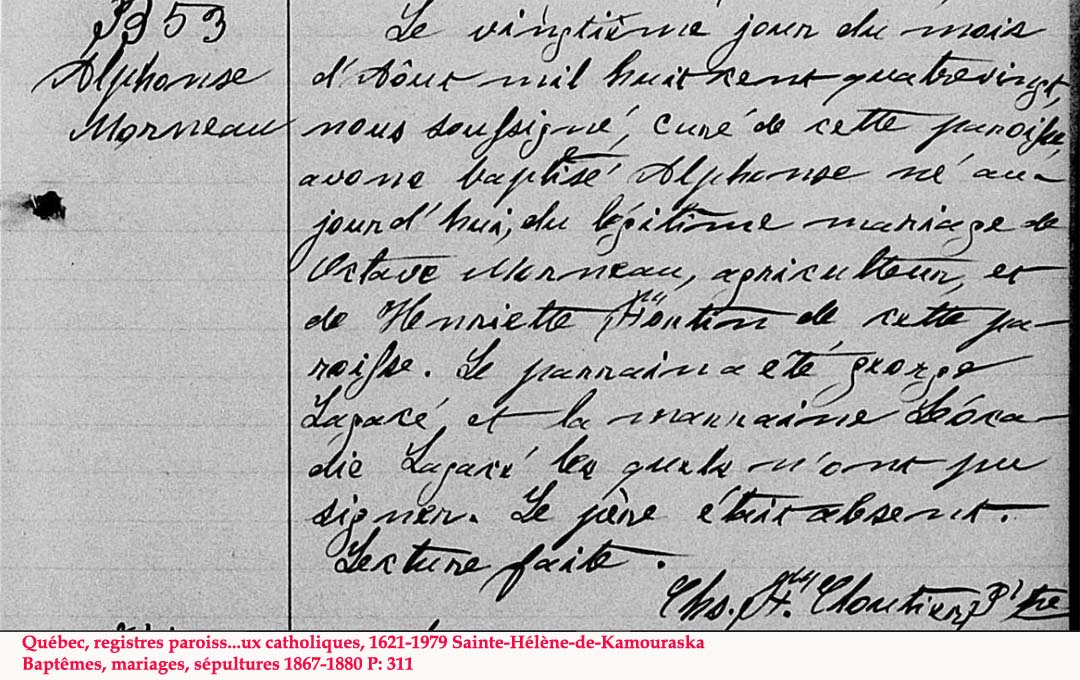 B 53
Alphonse
Morneau
Le vingtième jour du mois
d'Aôut mil huit cent quatrevingt,
nous soussigné, curé de cette paroisse,
avons baptisé Alphonse né au-
jourd'hui, du légitime mariage de
Octave Morneau, agriculteur, et
de Henriette de cette pa-
roisse. Le parrain a été george
Lagacé, et la marraine Léoca-
die Lagacé les quels n'ont pu
signer. Le père était absent.
Lecture faite.
Chs. Cloutier, Ptre
Québec, registres paroiss...ux catholiques, 1621-1979 Sainte-Hélène-de-Kamouraska
Baptêmes, mariages, sépultures 1867-1880 P: 311